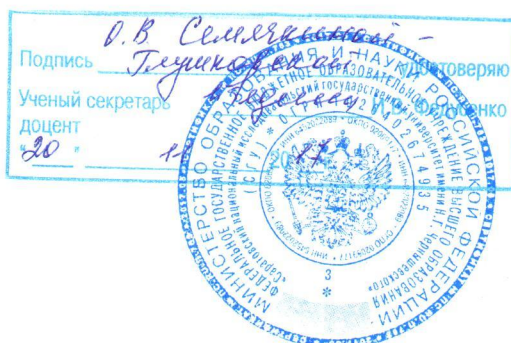 О.В. Семячкиной-
Подпись Глушковской удостоверяю
Ученый секретарь
доцент
"20" 11 2017
МИНИСТЕРСТВО ОБРАЗОВАНИЯ И НАУКИ РОССИЙСКОЙ ФЕДЕРАЦИИ
ФЕДЕРАЛЬНОЕ ГОСУДАРСТВЕННОЕ ОБРАЗОВАТЕЛЬНОЕ УЧРЕЖДЕНИЕ ВЫСШЕГО ОБРАЗОВАНИЯ
"Саратовский национальный исследовательский государственный университет имени Н.Г. Чернышевского"
(СГУ) * ОГРН 1026402674935
3
*